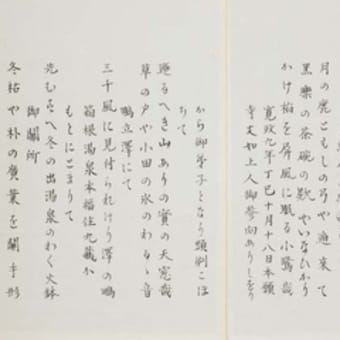 月の鹿ともしの弓や遁来て
黒楽の茶碗の欠やいなひかり
かけ稲を屏風に眠る小鷺哉
寛政九年丁巳十月十八日本願
寺文如上人御参向ありしをり
から御弟子となり頭剃こほ
ちて
廻るへき山ありの実の天窓哉
草の戸や小田の氷のわるゝ音
鴫立澤にて
三千風に見付られけり澤の鴫
箱根湯泉本福住九蔵か
もとにとまりて
先むそへ冬の出湯泉のわく火鉢
御関所
冬枯や朴の廣葉を関手形